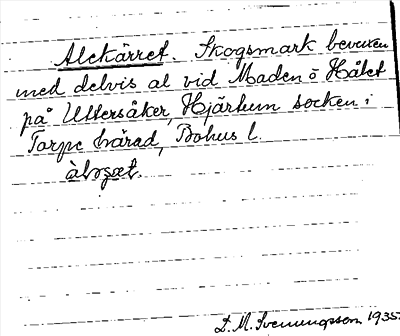 Alekärret. Skogsmark bevuxen
med delvis al vid Maden ö Hålet
på Uttersåker, Hjärtum socken i
Torpe härad, Bohus l.
D. M. Svenungsson 1935.